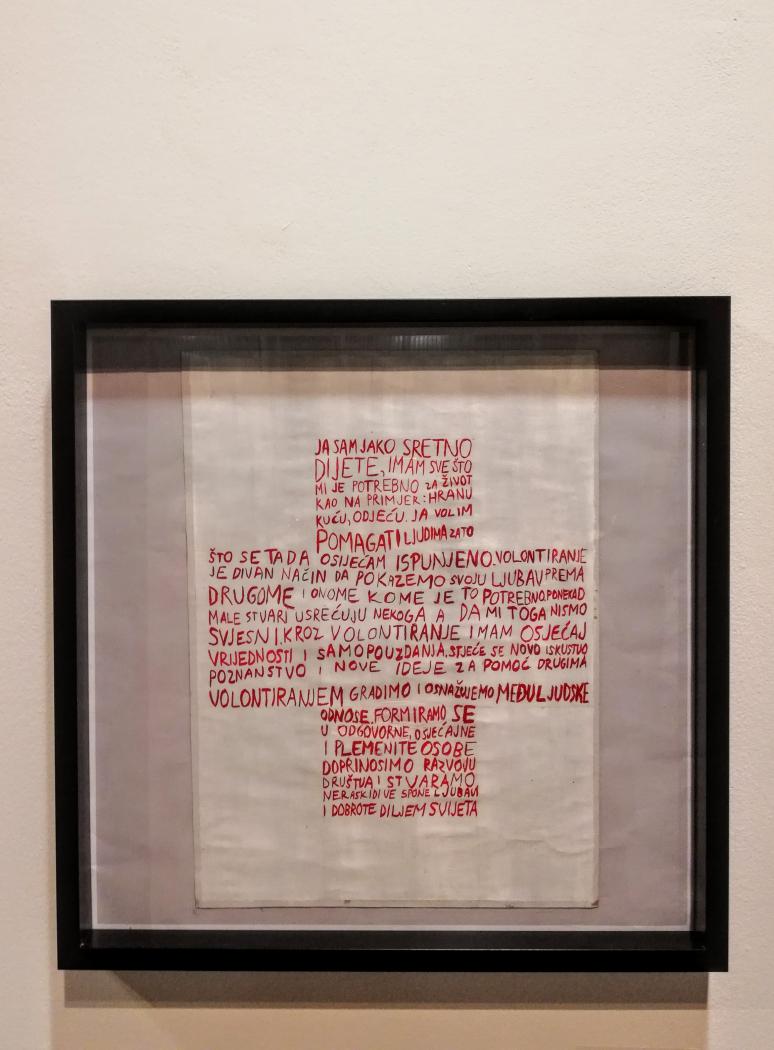 JA SAM JAKO SRETNO
DIJETE, IMAM SVE ŠTO
MI JE POTREBNO ZA ŽIVOT
KAO NA PRIMJER: HRANU
KUĆU, ODJEĆU. JA VOLIM
POMAGATI LJUDIMA ZATO
ŠTO SE TADA OSIJEĆAM ISPUNJENO. VOLONTIRANJE
JE DIVAN NAČIN DA POKAZEMO SVOJU LJUBAV PREMA
DRUGOME I ONOME KOME JE TO POTREBNO. PONEKAD
MALE STVARI USREĆUJU NEKOGA A DA MI TOGA NISMO
SVJESNI. KROZ VOLONTIRANJE IMAM OSJEĆAJ
VRIJEDNOSTI I SAMOPOUZDANJA. STJEĆE SE NOVO ISKUSTVO
POZNANSTVO I NOVE IDEJE ZA POMOĆ DRUGIMA
VOLONTIRANJEM GRADIMO I OSNAŽUJEMO MEĐULJUDSKE
ODNOSE. FORMIRAMO SE
U ODGOVORNE, OSJEĆAJNE
I PLEMENITE OSOBE
DOPRINOSIMO RAZVOJU
DRUŠTVA I STVARAMO
NERASKIDIVE SPONE LJUBAVI
I DOBROTE DILJEM SVIJETA